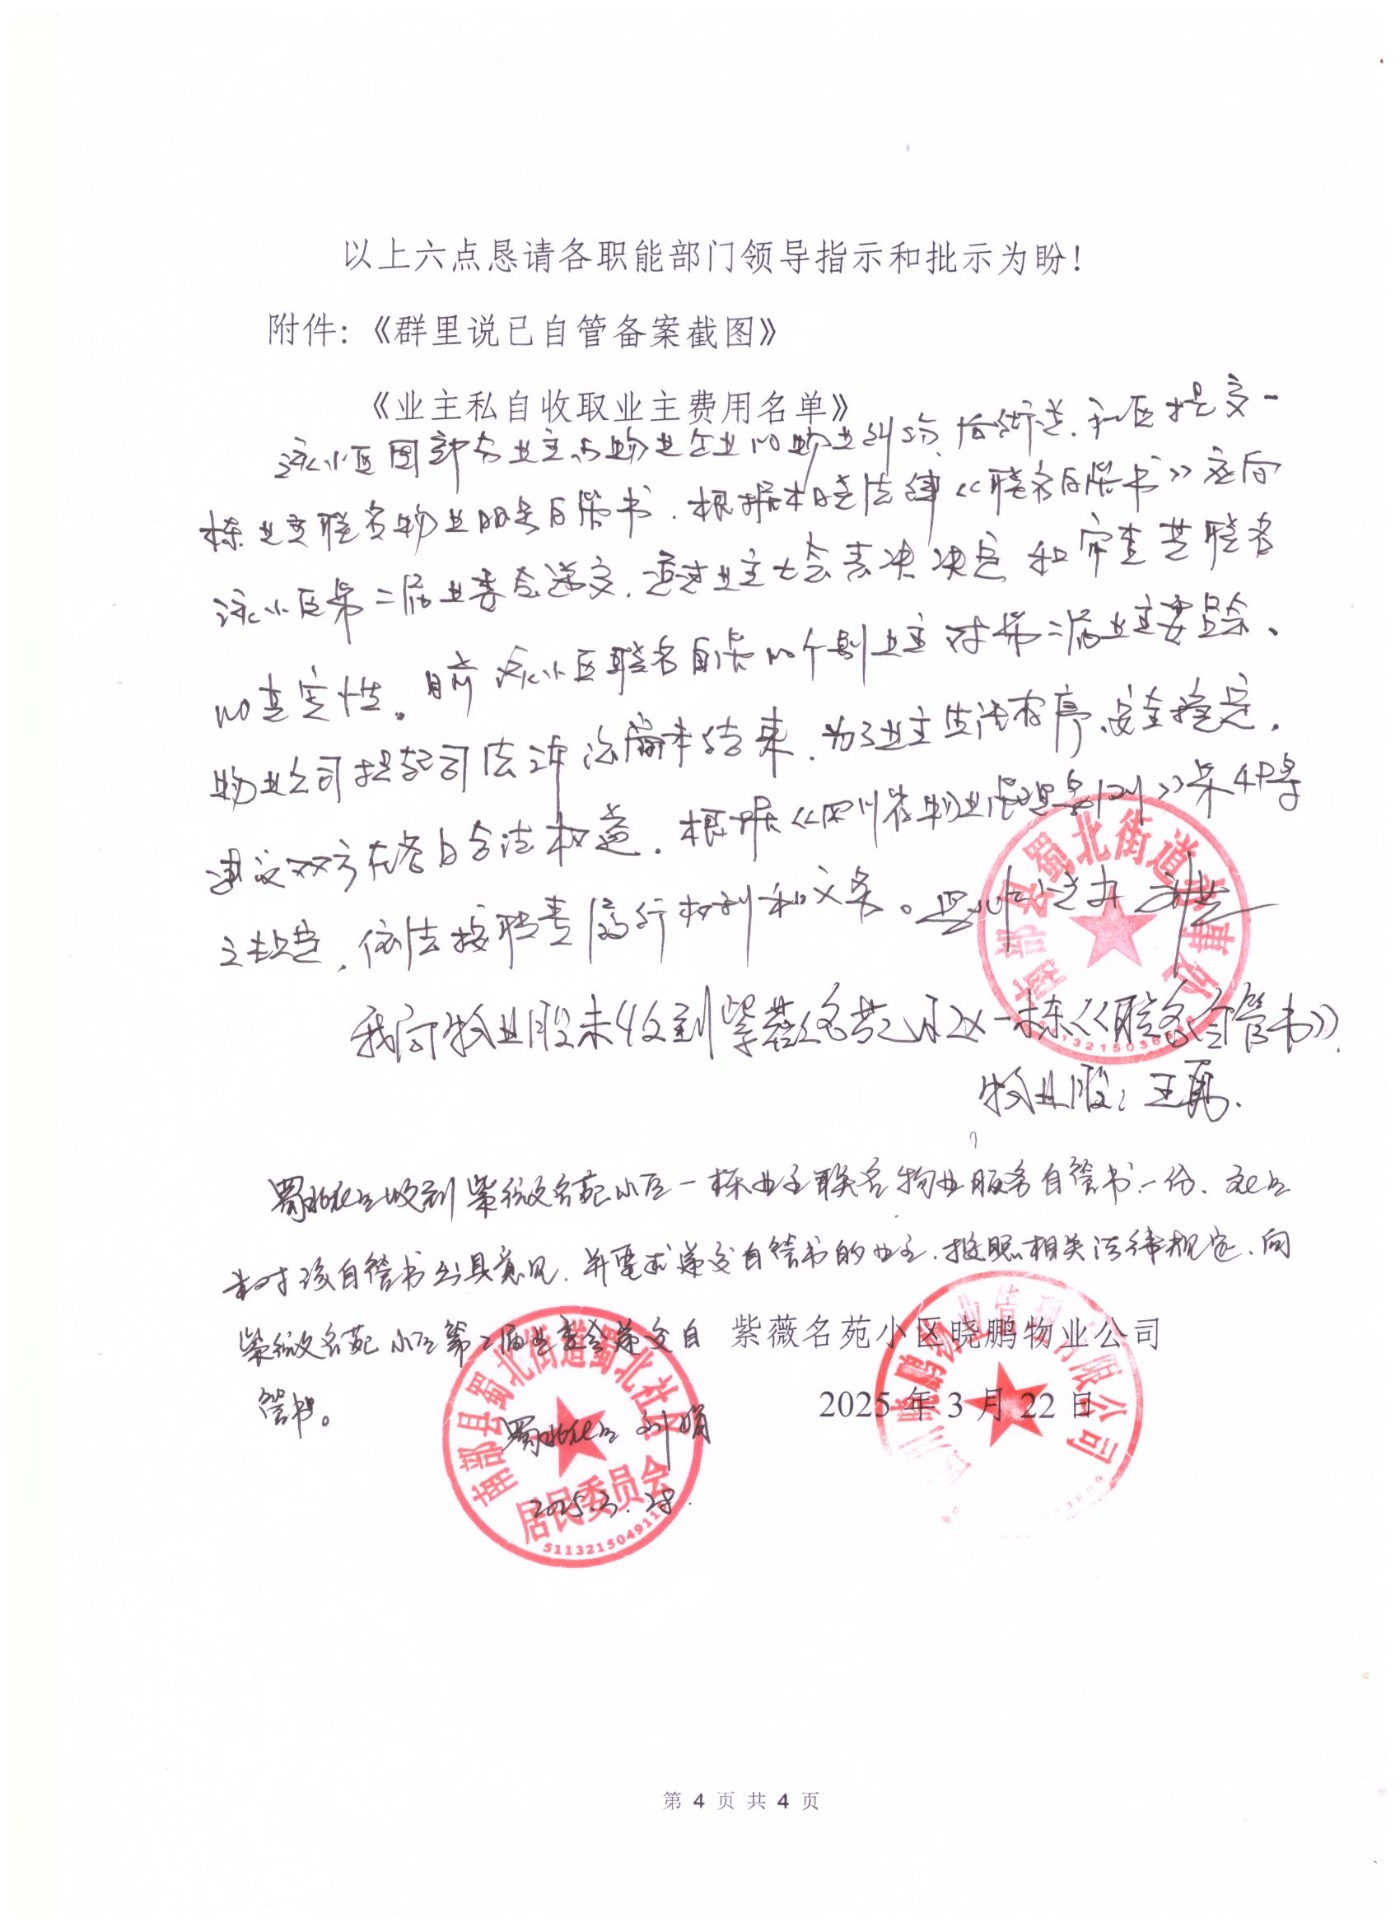 以上六点恳请各职能部门领导指示和批示为盼！
附件：《群里说已自管备案截图》
《业主私自收取业主费用名单》
该小区因部分业主与物业企业的物业纠纷，后街道、社区提交一
栋业主联名物业服务自管书，根据相关法律《联名自管书》应向
该小区第二届业委会递交，通过业主大会表决决定和审查其联名
的真实性。目前该小区联名自管的个别业主对第二届业主委员会、
物业公司提起司法诉讼尚未结束，为了业主生活有序、安全稳定，
建议双方在各自合法权益，根据《四川省物业管理条例》
之规定，依法按职责履行权利和义务。
我局物业股未收到紫薇名苑小区一栋《联名自管书》。
物业股：王勇.
蜀北社区收到紫薇名苑小区一栋业主联名物业服务自管书一份，社区
未对该自管书出具意见，并要求递交自管书的业主，按照相关法律规定，向
紫薇名苑小区第二届业委会递交自
管书。
紫薇名苑小区晓鹏物业公司
2025年3月22日
蜀北社区
2025.3.28.
南部县蜀北街道蜀北社区
居民委员会
第 4 页 共 4 页